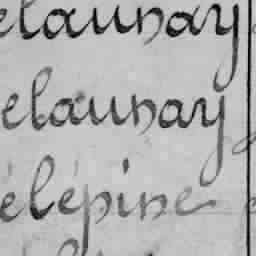 elaunay
elaunay
élépine